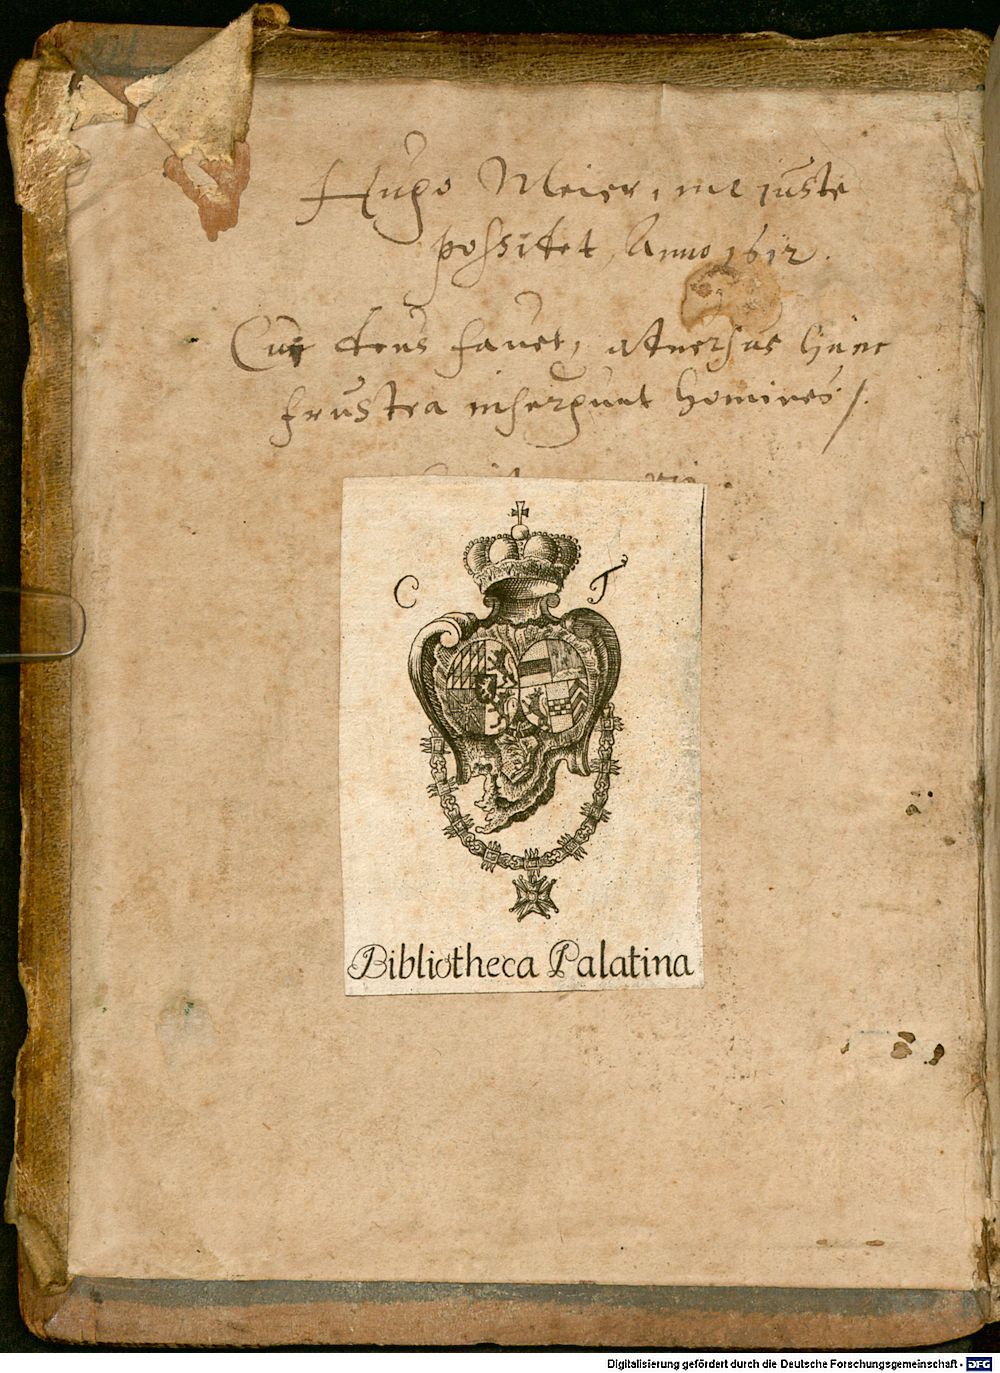 Hugo Meier, me iuste
possitet, Anno 1612.
Cui deus favet, adversus hunc
frustra insergunt homines /.
C T
Bibliotheca Palatina
Digitalisierung gefördert durch die Deutsche Forschungsgemeinschaft - DFG